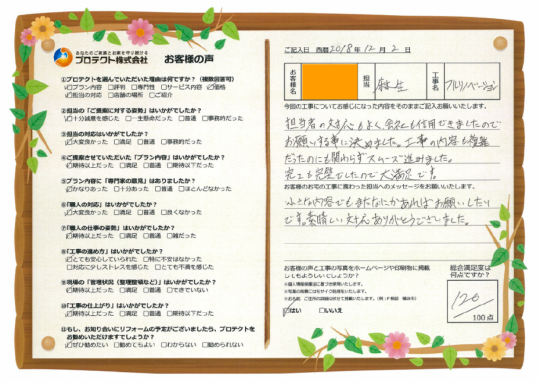 あなたのご家族とお家を守り続ける
プロテクト株式会社 お客様の声
①プロテクトを選んでいただいた理由は何ですか？（複数回答可）
☑プラン内容 □評判 □専門性 □サービス内容 ☑価格
☑担当の対応 □店舗の場所 □ご紹介
②担当の「ご提案に対する姿勢」はいかがでしたか？
☑十分誠意を感じた □一生懸命だった □普通 □事務的だった
③担当の対応はいかがでしたか？
☑大変良かった □満足 □普通 □事務的だった
④ご提案させていただいた「プラン内容」はいかがでしたか？
☑期待以上だった □満足 □普通 □期待以下だった
⑤プラン内容に「専門家の意見」はありましたか？
☑かなりあった □十分あった □普通 □ほとんどなかった
⑥「職人の対応」はいかがでしたか？
☑大変良かった □満足 □普通 □良くなかった
⑦「職人の仕事の姿勢」はいかがでしたか？
☑期待以上だった □満足 □普通 □雑だった
⑧「工事の進め方」はいかがでしたか？
☑とても安心していられた □特に不安はなかった
□対応に少しストレスを感じた □とても不満を感じた
⑨現場の「管理状況（整理整頓など）」はいかがでしたか？
☑期待以上だった □満足 □普通 □できていない
⑩「工事の仕上がり」はいかがでしたか？
☑期待以上だった □満足 □普通 □期待以下だった
⑪もし、お知り合いにリフォームの予定がございましたら、プロテクトを
お勧めいただけますでしょうか？
☑ぜひ勧めたい □勧めてもよい □わからない □勧められない
ご記入日 西暦2018年12月2日
お客様名 担当 麻生 工事名 フルリノベーション
今回の工事についてお感じになった内容をそのままご記入お願いいたします。
担当者の
もよく会社も信用できましたので
お願いする事に決めました。工事の内容も複雑
だったのにも関わらずスムーズに進みました。
完工も完璧でしたので大満足です。
お客様のお宅の工事に携わった担当へのメッセージをお願いします。
小さな内容でもまたなにかあればお願いしたい
です。素晴しい
ありがとうございました。
お客様の声と工事の写真をホームページや印刷物に掲載
してもよろしいでしょうか？
☑はい □いいえ
総合満足度は
何点ですか？
120
100点